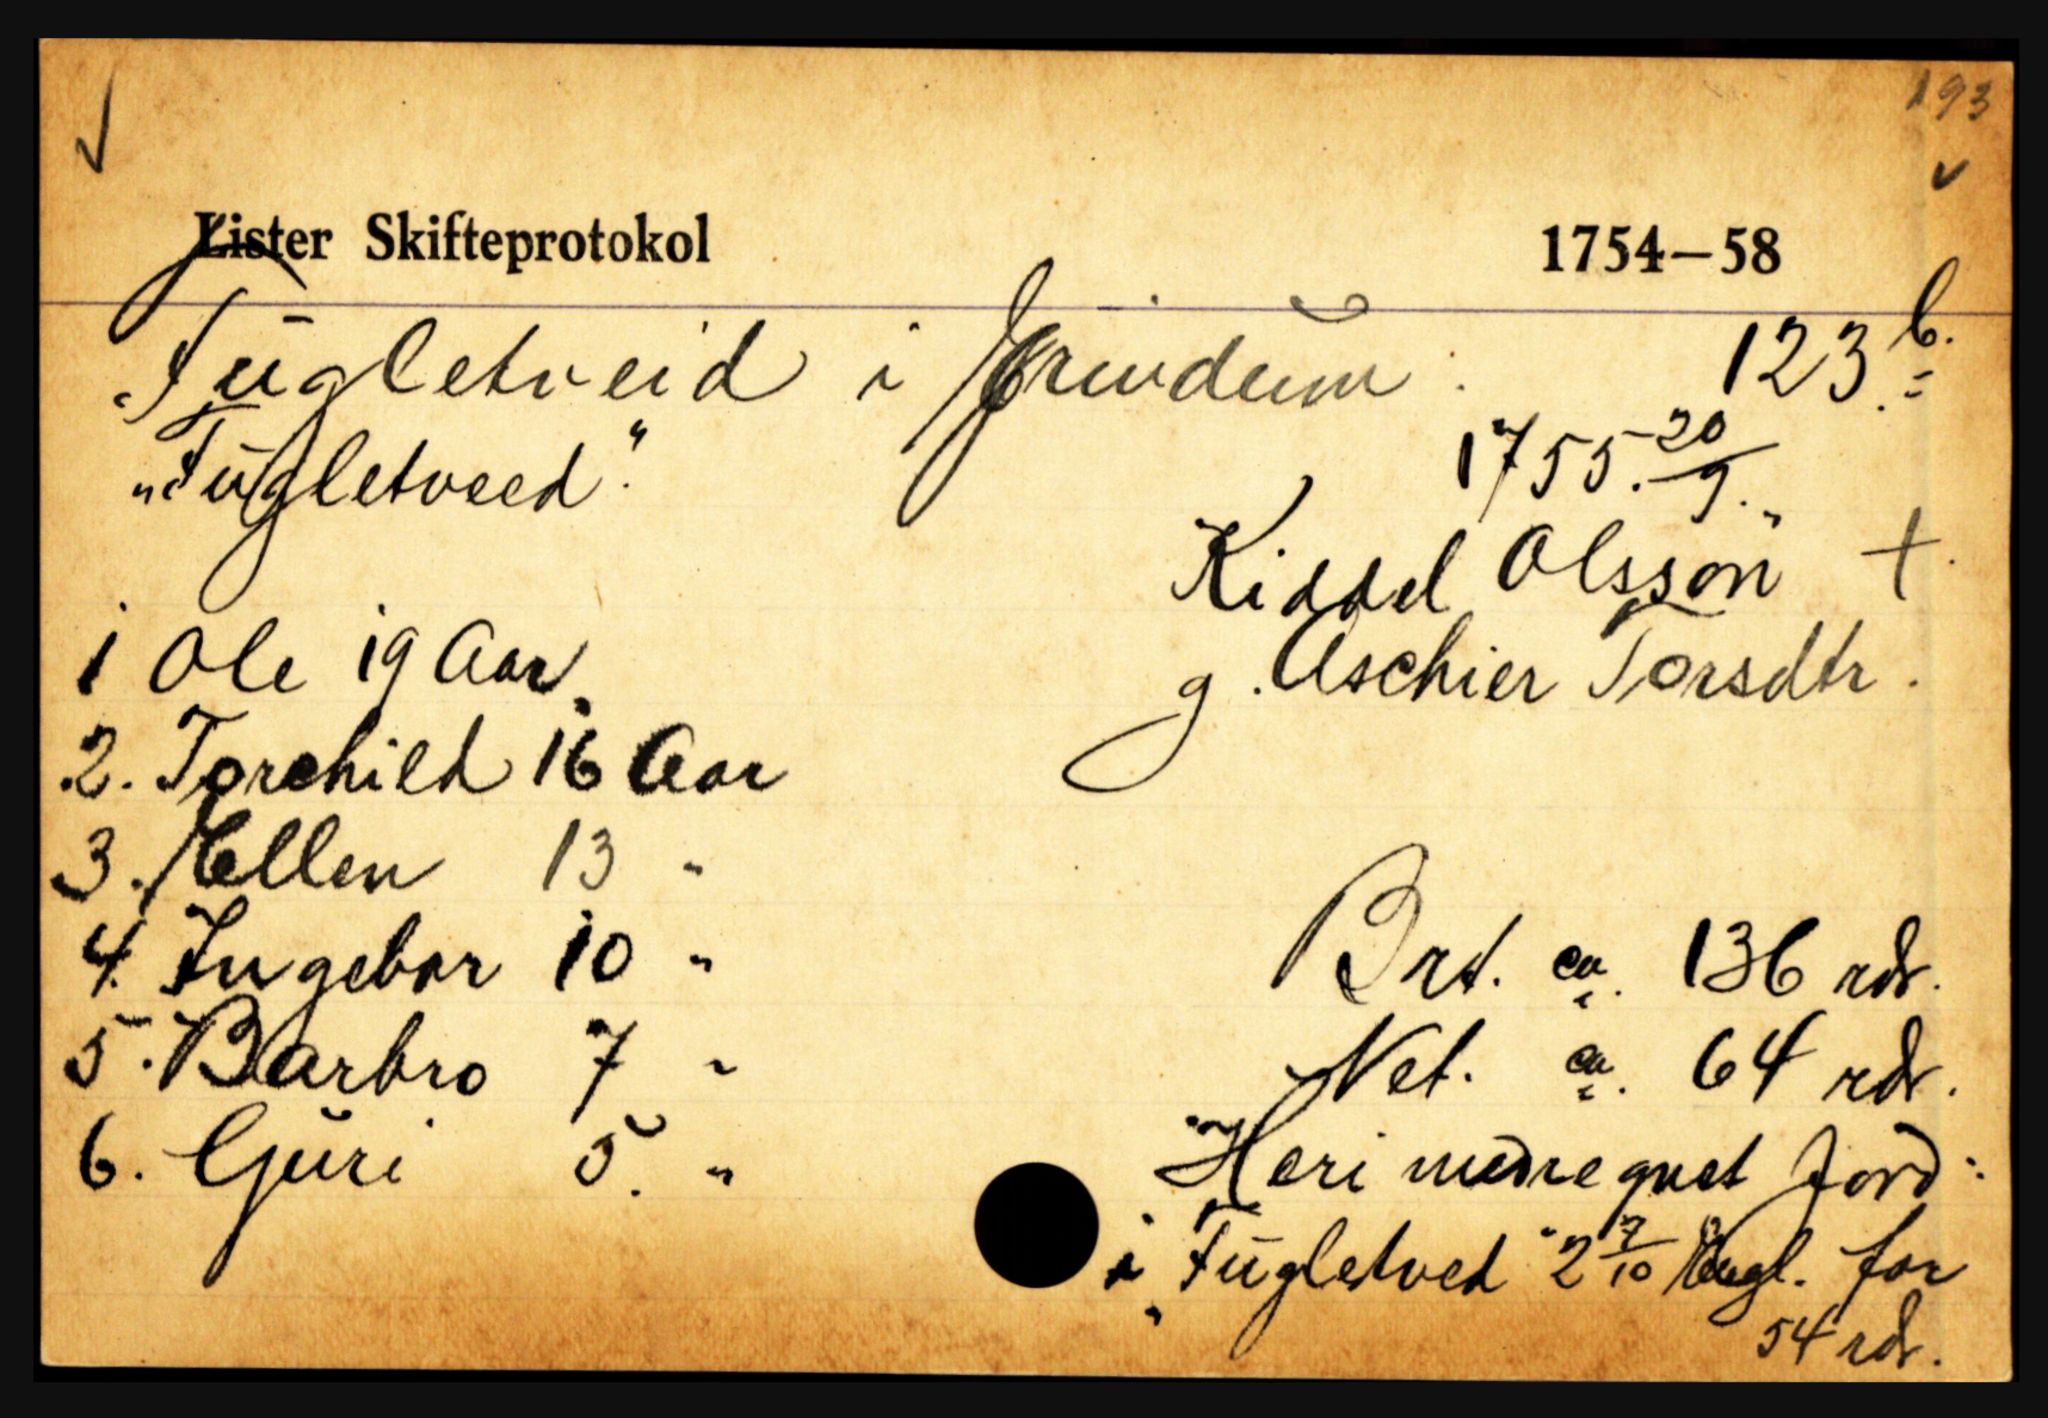 193
Lister Skifteprotokol 1754–58
Fugletveid i Grindum : 123.b.
„Fugletveed“. 1755.20/9.
Kiddel Olsson †.
g. Aschier Torsdtr.
1 Ole 19 Aar.
2. Torchild 16 Aar
3. Ellen 13 "
4. Ingebor 10 "
5. Barbro 7 "
6. Guri 5. "
Brt. ca. 136 rdr.
Net. ca. 64 rdr.
Heri medregnet Jord:
i Fugletved 2 7/10 Engl. for
54 rdr.